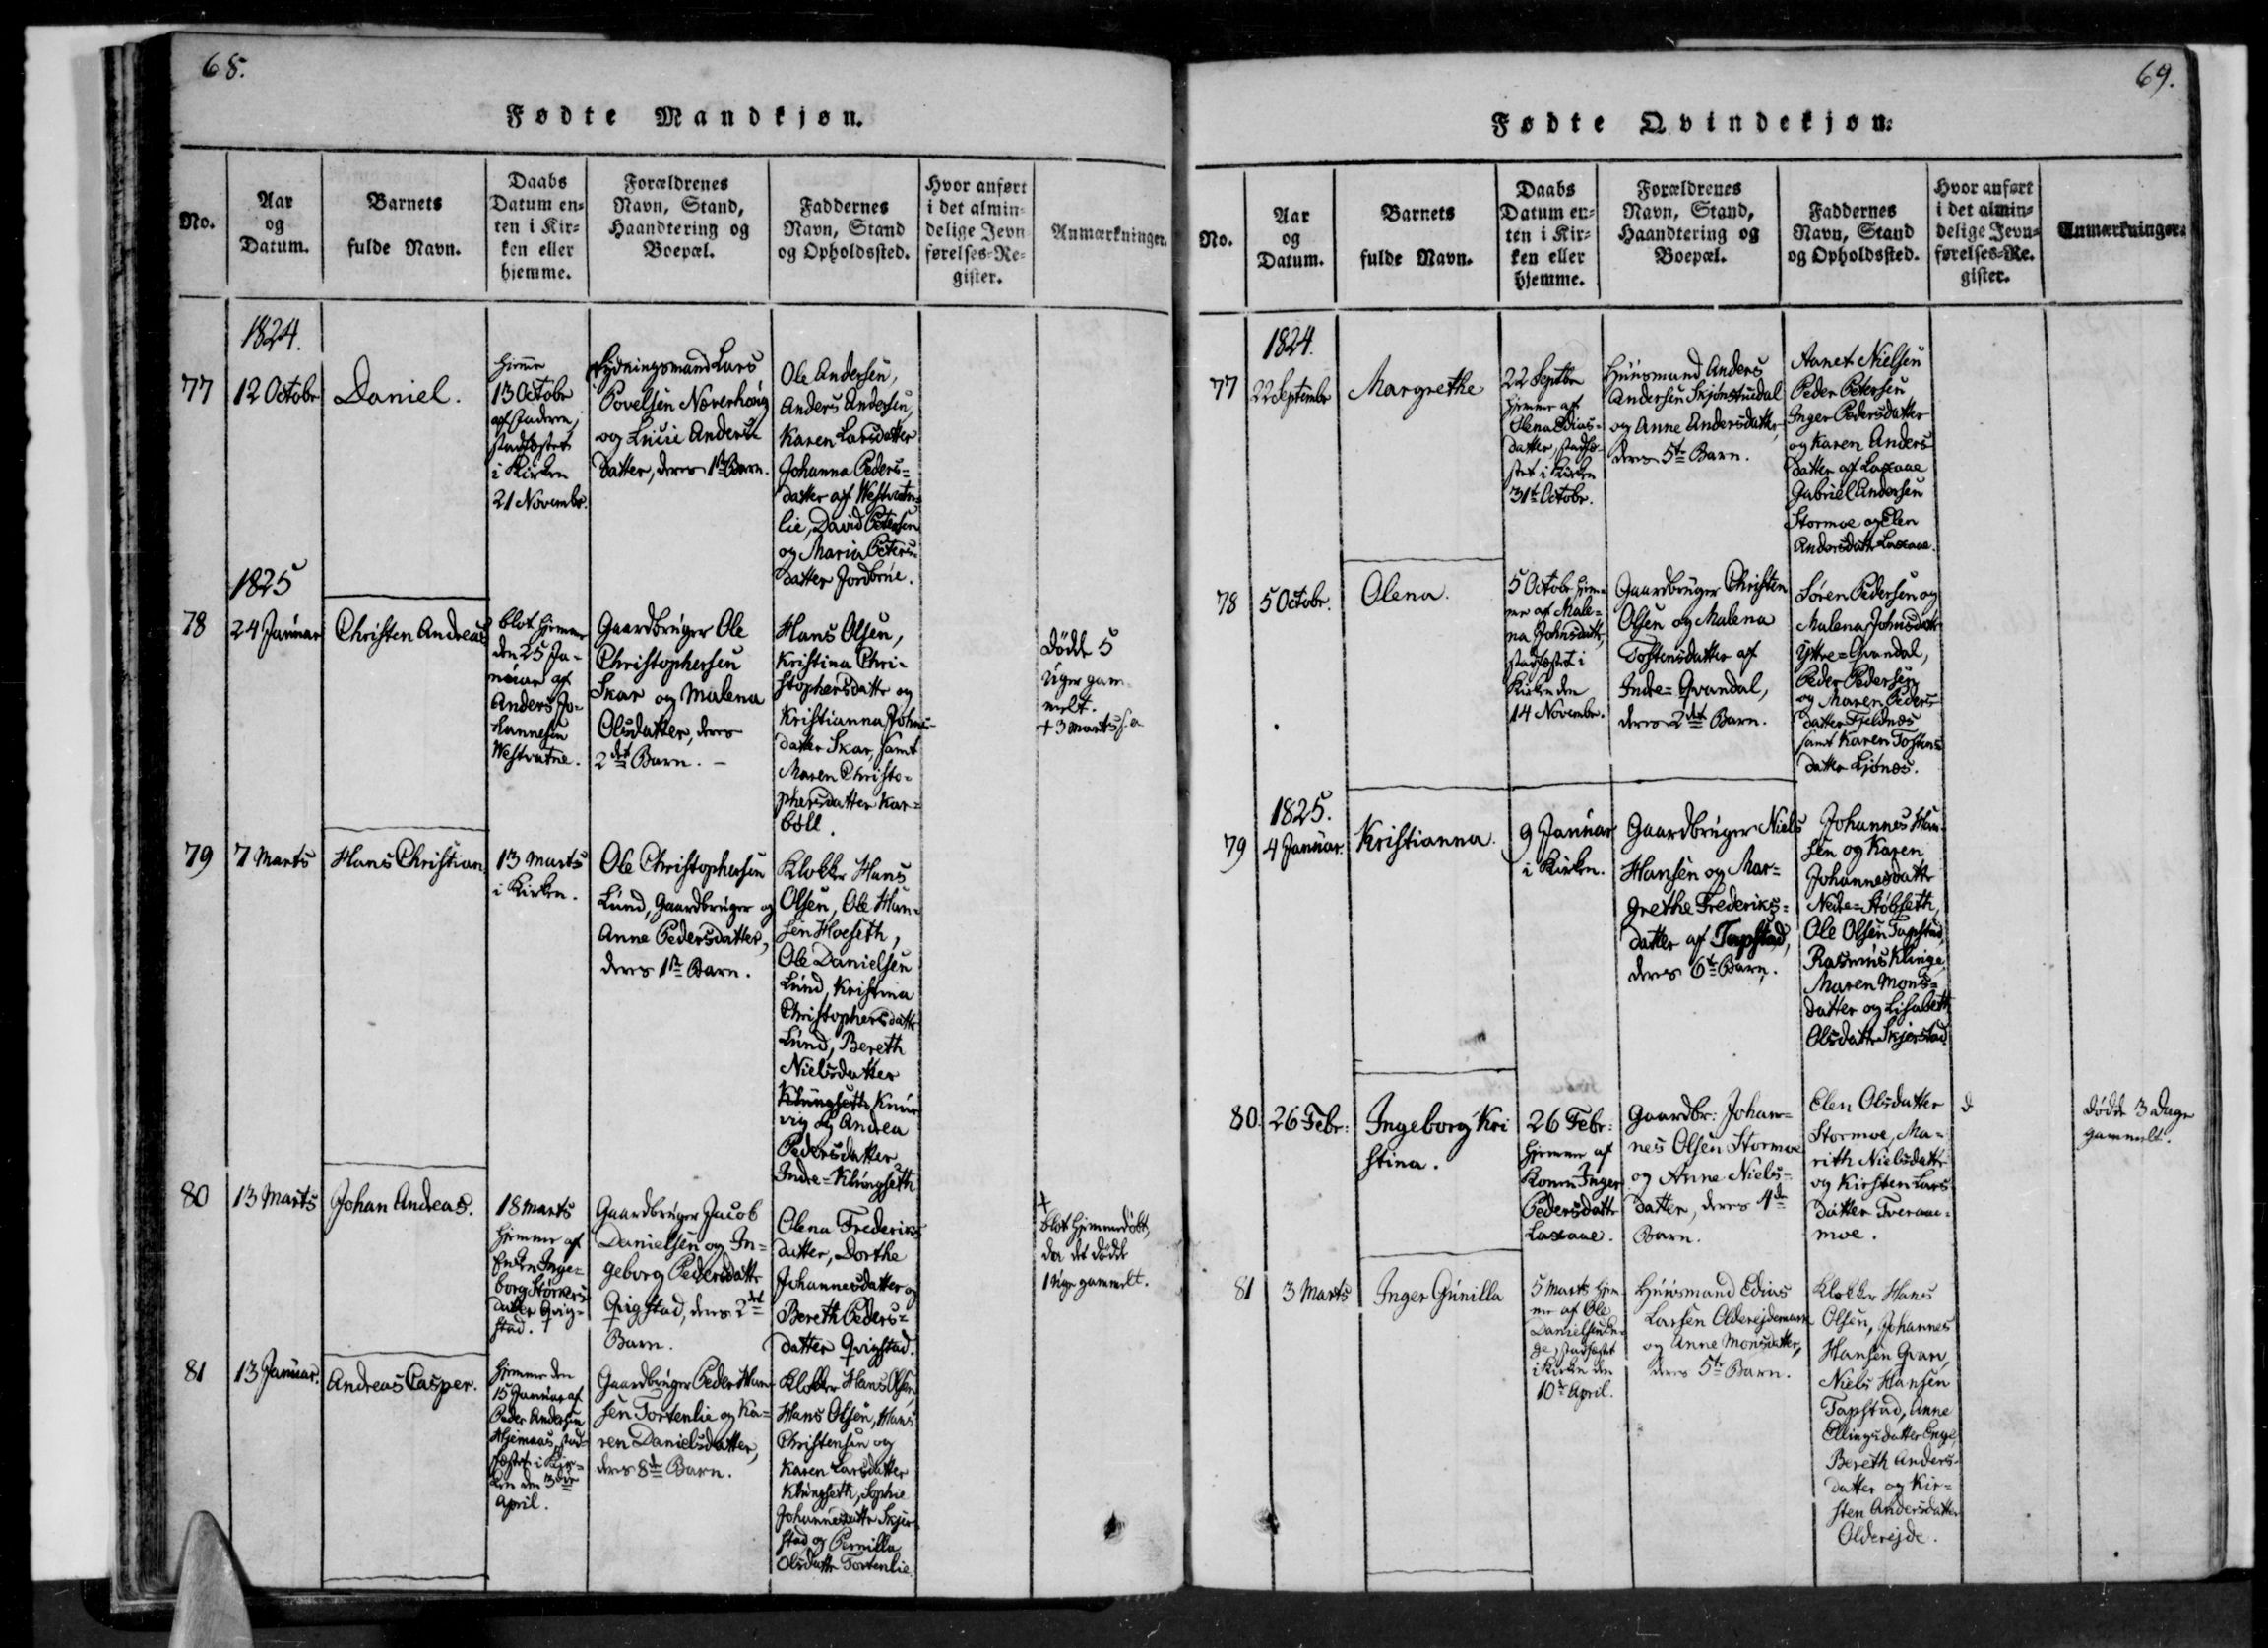 68.
Fødte Mandkjøn.
No.
Aar
og
Datum.
Barnets
fulde Navn.
Daabs
Datum en-
ten i Kir-
ken eller
hjemme.
Forældrenes
Navn, Stand,
Haandtering og
Boepæl.
Faddernes
Navn, Stand
og Opholdssted.
Hvor anført
i det almin-
delige Jevn
førelses-Re-
gister.
Anmærkninger.
1824.
77
12 Octobr
Daniel.
hjemme
13 Octobr
af Faderen,
stadfæstet
i Kirken
21 Novembr.
Rydningsmand Lars
Povelsen Noverhøug
og Lucie Anders
datter, deres 1ste Barn.
Ole Andersen,
Anders Andersen,
Karen Larsdatter
Johanna Peders-
datter af Westvatn-
lie, David Petersen
og Maria Peters-
datter Jordbrue.
1825
78
24 Januar
Christen Andreas
blot hjemme
den 25 Ja-
nuar af
Anders Jo-
hannesen
Westvatne.
Gaardbruger Ole
Christophersen
Skar og Malena
Olsdatter, deres
2det Barn. –
Hans Olsen,
Kristina Chri-
stophersdattr og
Kristianna Johns-
datter Skar, samt
Maren Christo-
phersdatter Kar-
bøll.
Dødde 5
Uger gam-
melt.
+ 3 Marts
79
7 Marts
Hans Christian
13 Marts
i Kirken.
Ole Christophersen
Lund, Gaardbruger og
Anne Pedersdatter,
deres 1ste Barn.
Klokker Hans
Olsen, Ole Han-
sen Hoeseth,
Ole Danielsen
Lund, Kristina
Christophersdattr
Lund, Bereth
Nielsdatter
Klungseth Knur
vig og Andrea
Pedersdatter
Indre-Klungseth
80
13 Marts
Johan Andreas.
18 Marts
hjemme af
Enken Inge-
borg Størkers-
datter Qvig-
stad.
Gaardbruger Jacob
Danielsen og In-
geborg Pedersdattr
Qvigstad, deres 2det
Barn.
Olena Frederiks
datter, Dorthe
Johannesdatter og
Bereth Peders-
datter Qvigstad.
+
blot hjemmedøbt,
da det dødde
1 Uge gammelt.
81
13 Januar.
Andreas Casper.
Hjemme den
15 Januar af
Peder Andersen
Hjemaas, stad-
fæstet i Kir-
ken den 3die
April.
Gaardbruger Peder Han-
sen Tortenlie og Ka-
ren Danielsdatter,
deres 8de Barn.
Klokker Hans Olsen,
Hans Olsen, Hans
Christensen og
Karen Larsdatter
Klungseth, Sophie
Johannesdattr Skjer
stad og Pernilla
Olsdattr Tortenlie.
69.
Fødte Qvindekjøn.
No.
Aar
og
Datum.
Barnets
fulde Navn.
Daabs
Datum en-
ten i Kir-
ken eller
hjemme.
Forældrenes
Navn, Stand,
Haandtering og
Boepæl.
Faddernes
Navn, Stand
og Opholdssted.
Hvor anført
i det almin-
delige Jevn-
førelses-Re-
gister.
Anmærkninger.
1824.
77
22 Septembr
Margrethe
22 Septbr
hjemme af
Olena Edias-
datter, stadfæ-
stet i Kirken
31te Octobr.
Huusmand Anders
Andersen Skjønstuedal
og Anne Andersdatter,
deres 5te Barn.
Aanet Nielsen
Peder Petersen
Inger Pedersdatter
og Karen Anders
datter af Laxaae
Gabriel Andersen
Stormoe og Elen
Andersdattr Laxaae.
78
5 Octobr.
Olena.
5 Octobr hjem-
me af Male-
na Johnsdattr,
stadfæstet i
Kirken den
14 Novembr.
Gaardbruger Christen
Olsen og Malena
Tostensdatter af
Indre-Qvandal,
deres 2det Barn.
Søren Pedersen og
Malena Johnsdattr
Yttre-Qvandal,
Peder Pedersen
og Maren Peders
datter Fjeldnæs
samt Karen Tostens
datter Ljønæs.
1825.
79
4 Januar.
Kristianna.
9 Januar
i Kirken.
Gaardbruger Niels
Hansen og Mar-
grethe Frederiks-
datter af Tapstad,
deres 6te Barn.
Johannes Han-
sen og Karen
Johannesdattr
Nedre-Støbseth,
Ole Olsen Tapstad,
Rasmus Klinge
Maren Mons-
datter og Lisabeth
Olsdattr Skjerstad
80.
26 Febr:
Ingeborg Kri
stina.
26 Febr:
hjemme af
Konen Inger
Pedersdattr
Laxaae.
Gaardbr: Johan-
nes Olsen Stormoe
og Anne Niels-
datter, deres 4de
Barn.
Elen Olsdatter
Stormoe, Ma-
rith Nielsdattr
og Kirsten Lars
datter Tveraae-
moe.
Dødde 3 Dage
gammelt.
81
3 Marts
Inger Gunilla
5 Marts hjem-
me af Ole
Danielsen
stadfæstet
i Kirken den
10de April.
Huusmand Edias
Larsen Olderejdemark
og Anne Monsdatter,
deres 5te Barn.
Klokker Hans
Olsen, Johannes
Hansen Qvarv,
Niels Hansen
Tapstad, Anne
Ellingsdatter Enge,
Bereth Anders-
datter og Kir-
sten Andersdatter
Olderejde.